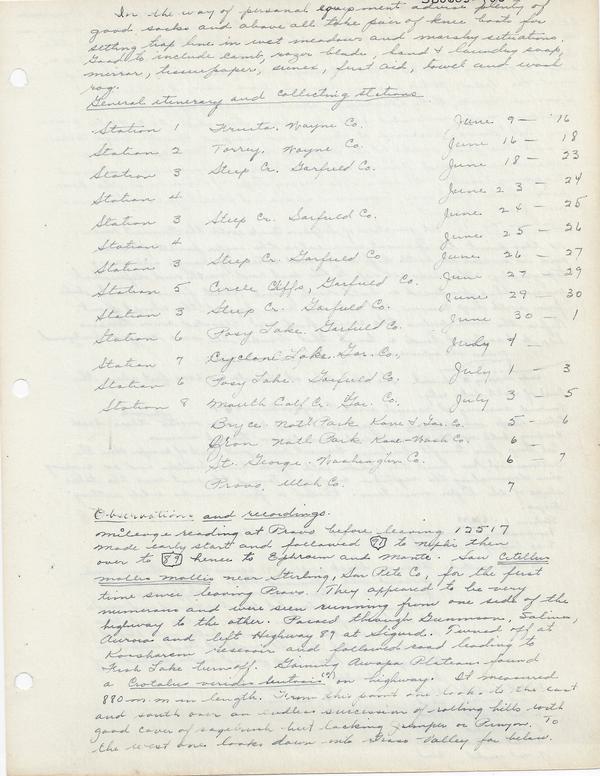 In the way of personal equipment advise plenty of
good socks and above all take pair of knee boots for
setting trap line in wet meadows and marshy situations.
Good to include comb, razor blade, hand & laundry soap,
mirror, tissue paper, first aid, towel and wash
rag.
General itinerary and collecting stations
Station 1 Fruita, Wayne Co. June 9 - 16
Station 2 Torrey, Wayne Co. June 16 - 18
Station 3 Steep Cr. Garfield Co. June 18 - 23
Station 4 June 23 - 24
Station 3 Steep Cr. Garfield Co. June 24 - 25
Station 4 June 25 - 26
Station 3 Steep Cr. Garfield Co June 26 - 27
Station 5 Circle Cliffs, Garfield Co. June 27 - 29
Station 3 Steep Cr. Garfield Co. June 29 - 30
Station 6 Posy Lake. Garfield Co. June 30 - 1
Station 7 Cyclone Lake. Gar. Co., July 1 -
Station 6 Posy Lake. Garfield Co. July 1 - 3
Station 8 Mouth Calf Cr. Gar. Co. July 3 - 5
Bryce Nat'l Park Kane & Gar. Co. 5 - 6
Zion Natl Park Kane-Wash Co. 6 -
St. George. Washington Co. 6 - 7
Provo, Utah Co. 7
Observations and recordings.
Mileage reading at Provo before leaving 12517
Made early start and followed 91 to Nephi then
over to 89 hence to Ephraim and Mante. Saw Citellus
mollis mollis near Sterling, San Pete Co, for the first
time since leaving Provo. They appeared to be very
numerous and were seen running from one side of the
highway to the other. Passed through Gunnison, Salina,
Aurora and left Highway 89 at Sigurd. Turned off at
Koosharem Reservoir and followed road leading to
Fish Lake turnoff. Gaining Awapa Plateau found
a Crotalus viridis lutosis (?) on highway. It measured
880 m m in length. From this point one looks to the east
and south over an endless succession of rolling hills with
good cover of sagebrush but lacking juniper or Pinyon. To
the west one looks down into Grass Valley far below.